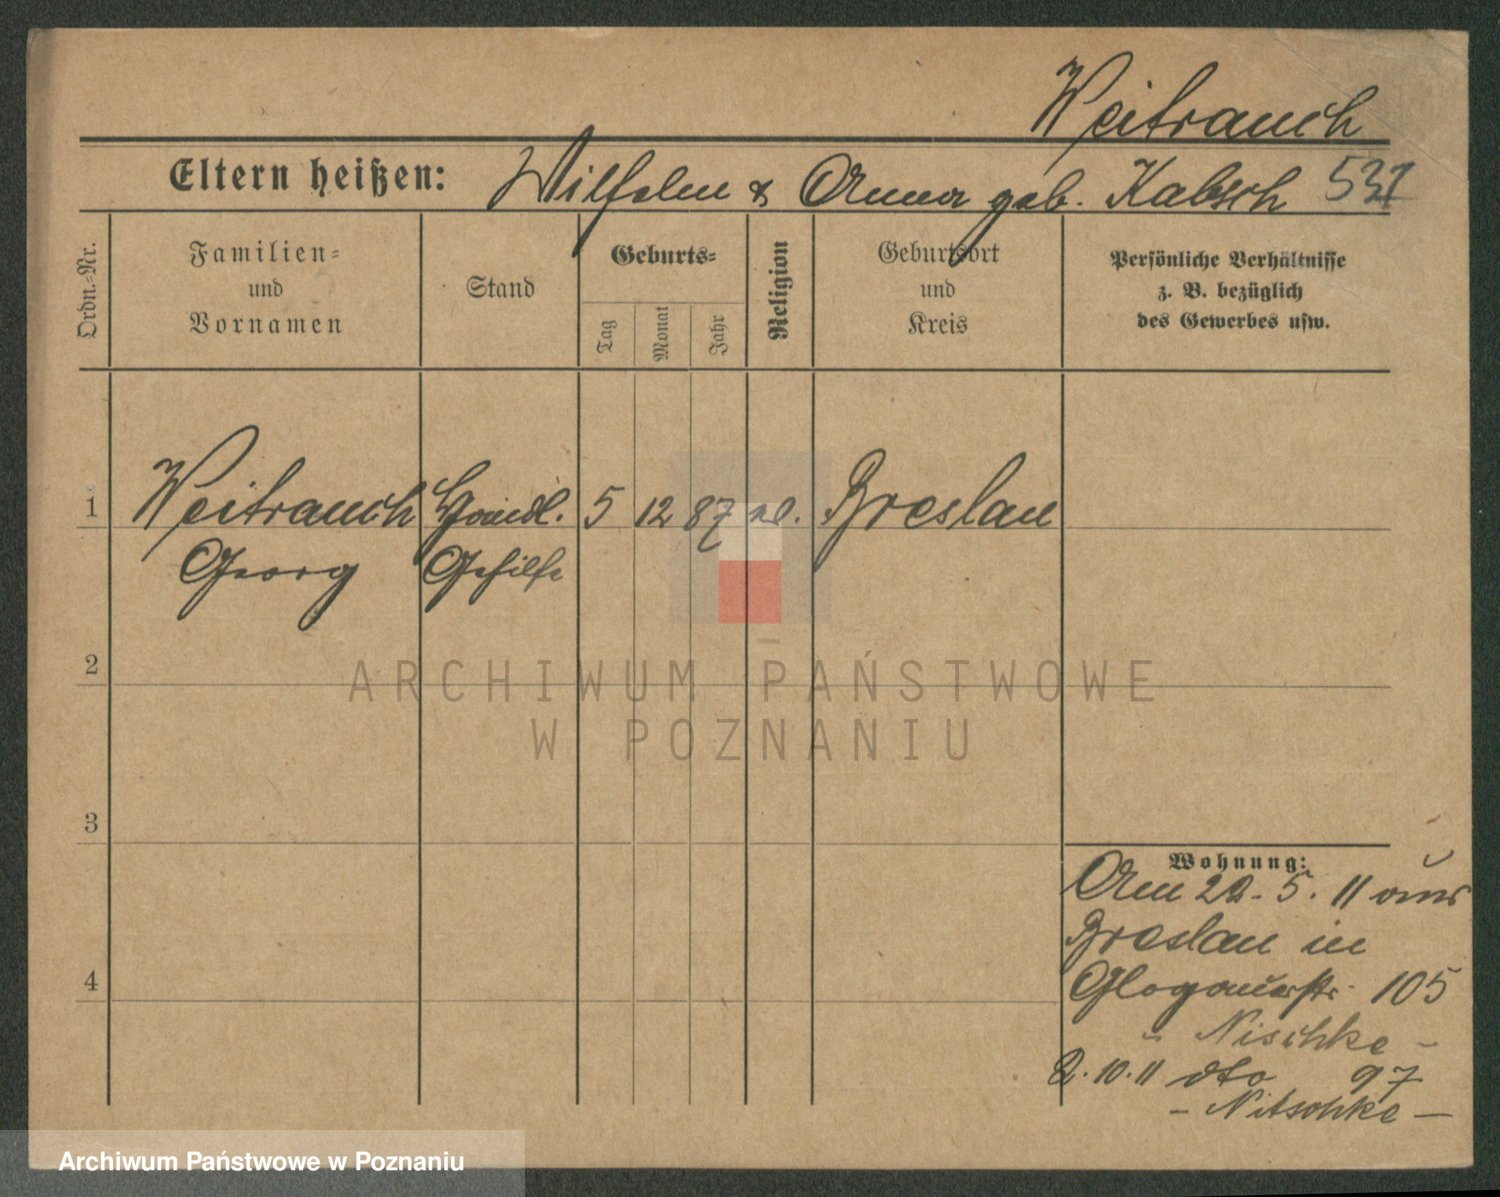 Weitrauch
Eltern heißen: Wilhelm & Anna geb. Kabsch 531
Ordn.-Nr.
Familien-
und
Vornamen
Stand
Geburts-
Tag
Monat
Jahr
Religion
Geburtsort
und
Kreis
Persönliche Verhältnisse
z. B. bezüglich
des Gewerbes usw.
1 Weitrauch Handl. 5 12 87 Breslau
Georg Gehilfe
2
ARCHIWUM PAŃSTWOWE
W POZNANIU
3
Wohnung:
Am 22. 5. 11 aus
Breslau in
4 Glogauerstr. 105
- Nischke -
2.10.11 dto 97
- Nitschke -
Archiwum Państwowe w Poznaniu